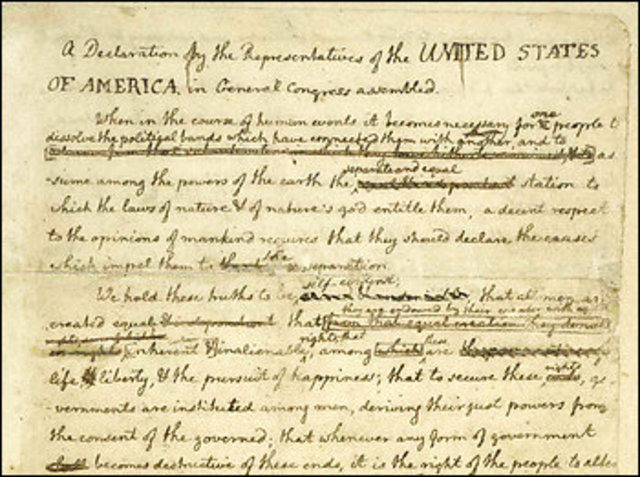 A Declaration by the Representatives of the UNITED STATES
OF AMERICA, in General Congress assembled.
When in the course of human events it becomes necessary for one people t
dissolve the political bands which have connected them with another, and to
as
separate and equal
-sume among the powers of the earth the station to
which the laws of nature & of nature's god entitle them, a decent respect
to the opinions of mankind requires that they should declare the causes
which impel them to the separation.
self-evident;
We hold these truths to be that all men are
they are endowed by their creator with
created equal that from that equal creation they derive
rights; that
inherent & inalienable among which these are
life, & liberty, & the pursuit of happiness; that to secure these rights, go-
vernments are instituted among men, deriving their just powers from
the consent of the governed; that whenever any form of government
becomes destructive of these ends, it is the right of the people to alter